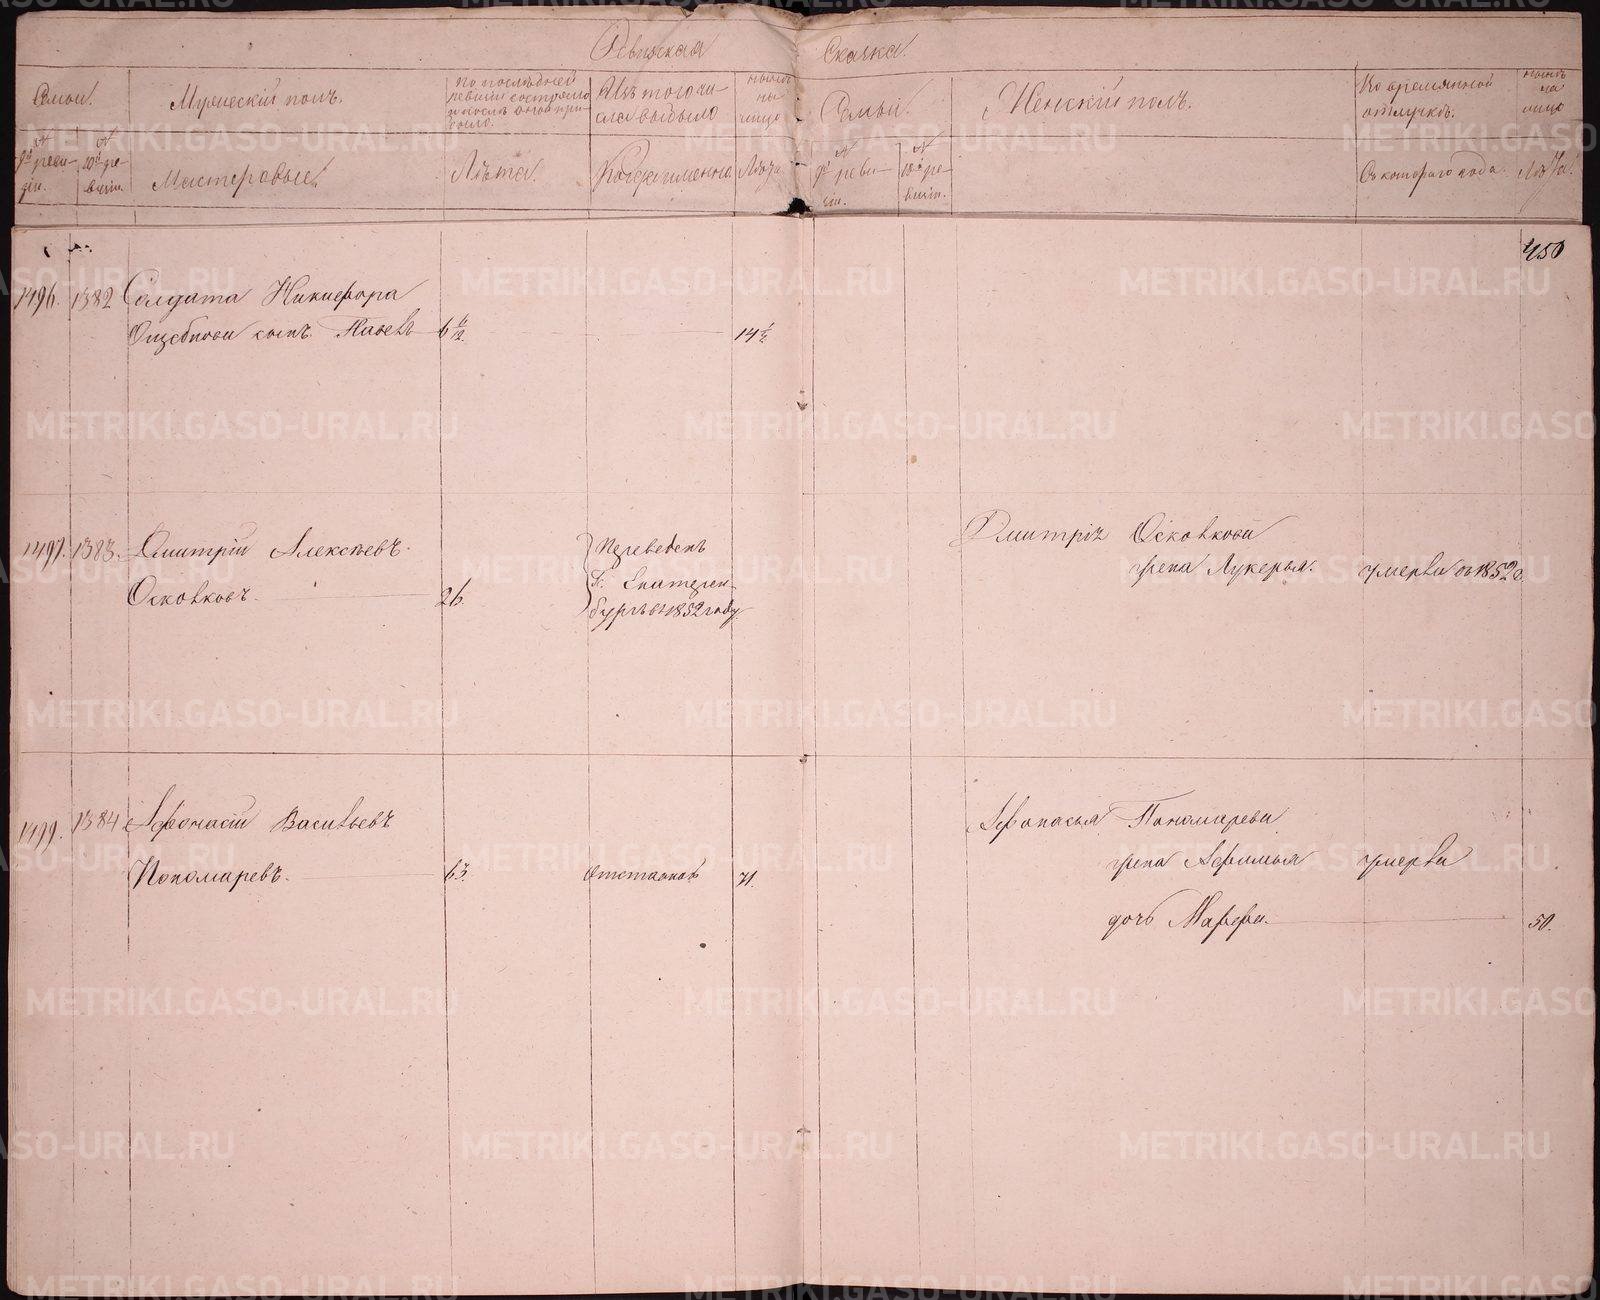 Ревизская Сказка.
Семьи.
Мужеский полъ.
По последней
ревизии состояло
и после оной при-
было.
Изъ того чи-
сла выбыло
ныне
на
лицо
Семьи.
Женскій полъ.
Во временной
отлучке.
ныне
на
лицо
№
9й реви-
зіи.
№
10й ре-
визіи.
Мастеровые.
Лета.
Когда именно
Лета.
№
9й реви-
зіи.
№
10й ре-
визіи.
Съ котораго года.
Лета.
450
1496. 1382 Солдата Никифора
сынъ 6 6/12. 14 1/2
1497. 1383. Дмитрій Алексеевъ
Осколковъ. 26.
Переведенъ
въ Екатерин-
бургъ въ 1852 году
Дмитрія Осколкова
жена Лукерья. умерла въ 1852 г.
1499. 1384 Афонасій Васильевъ
Пономаревъ. 63. Отставной 71.
Афонасья Пономарева
жена Афимья умерла
дочь Марфа. 50.
METRIKI.GASO-URAL.RU